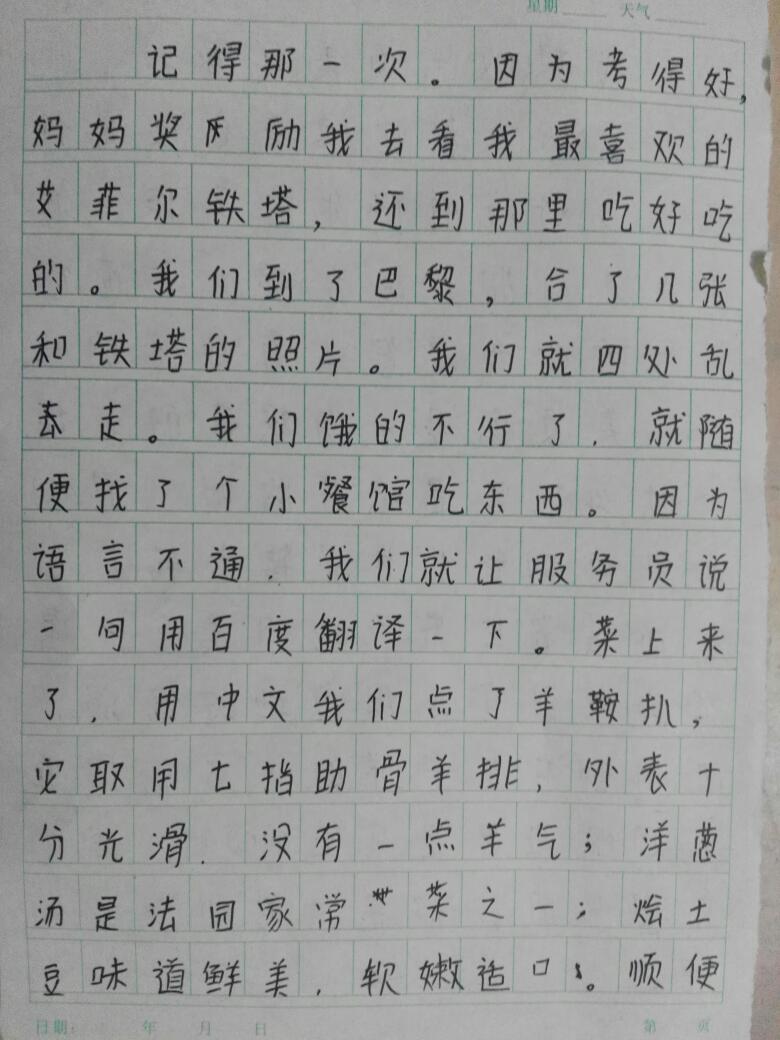 星期 天气
记得那一次。因为考得好，
妈妈奖励我去看我最喜欢的
艾菲尔铁塔，还到那里吃好吃
的。我们到了巴黎，合了几张
和铁塔的照片。我们就四处乱
走。我们饿的不行了，就随
便找了个小餐馆吃东西。因为
语言不通，我们就让服务员说
一句用百度翻译一下。菜上来
了，用中文我们点了羊鞍扒，
它取用七挡助骨羊排，外表十
分光滑，没有一点羊气；洋葱
汤是法国家常菜之一；烩土
豆味道鲜美，软嫩适口。顺便
日期： 年 月 日 第 页